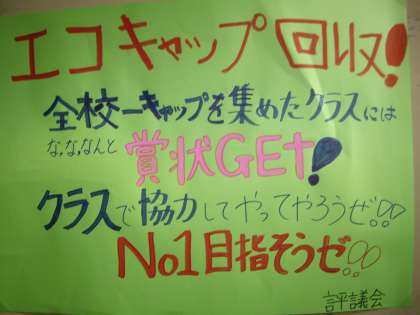 エコキャップ回収!
全校一キャップを集めたクラスには
な,な,なんと 賞状GEt!
クラスで協力してやってやろうぜ!!
No1目指そうぜ!!
評議会